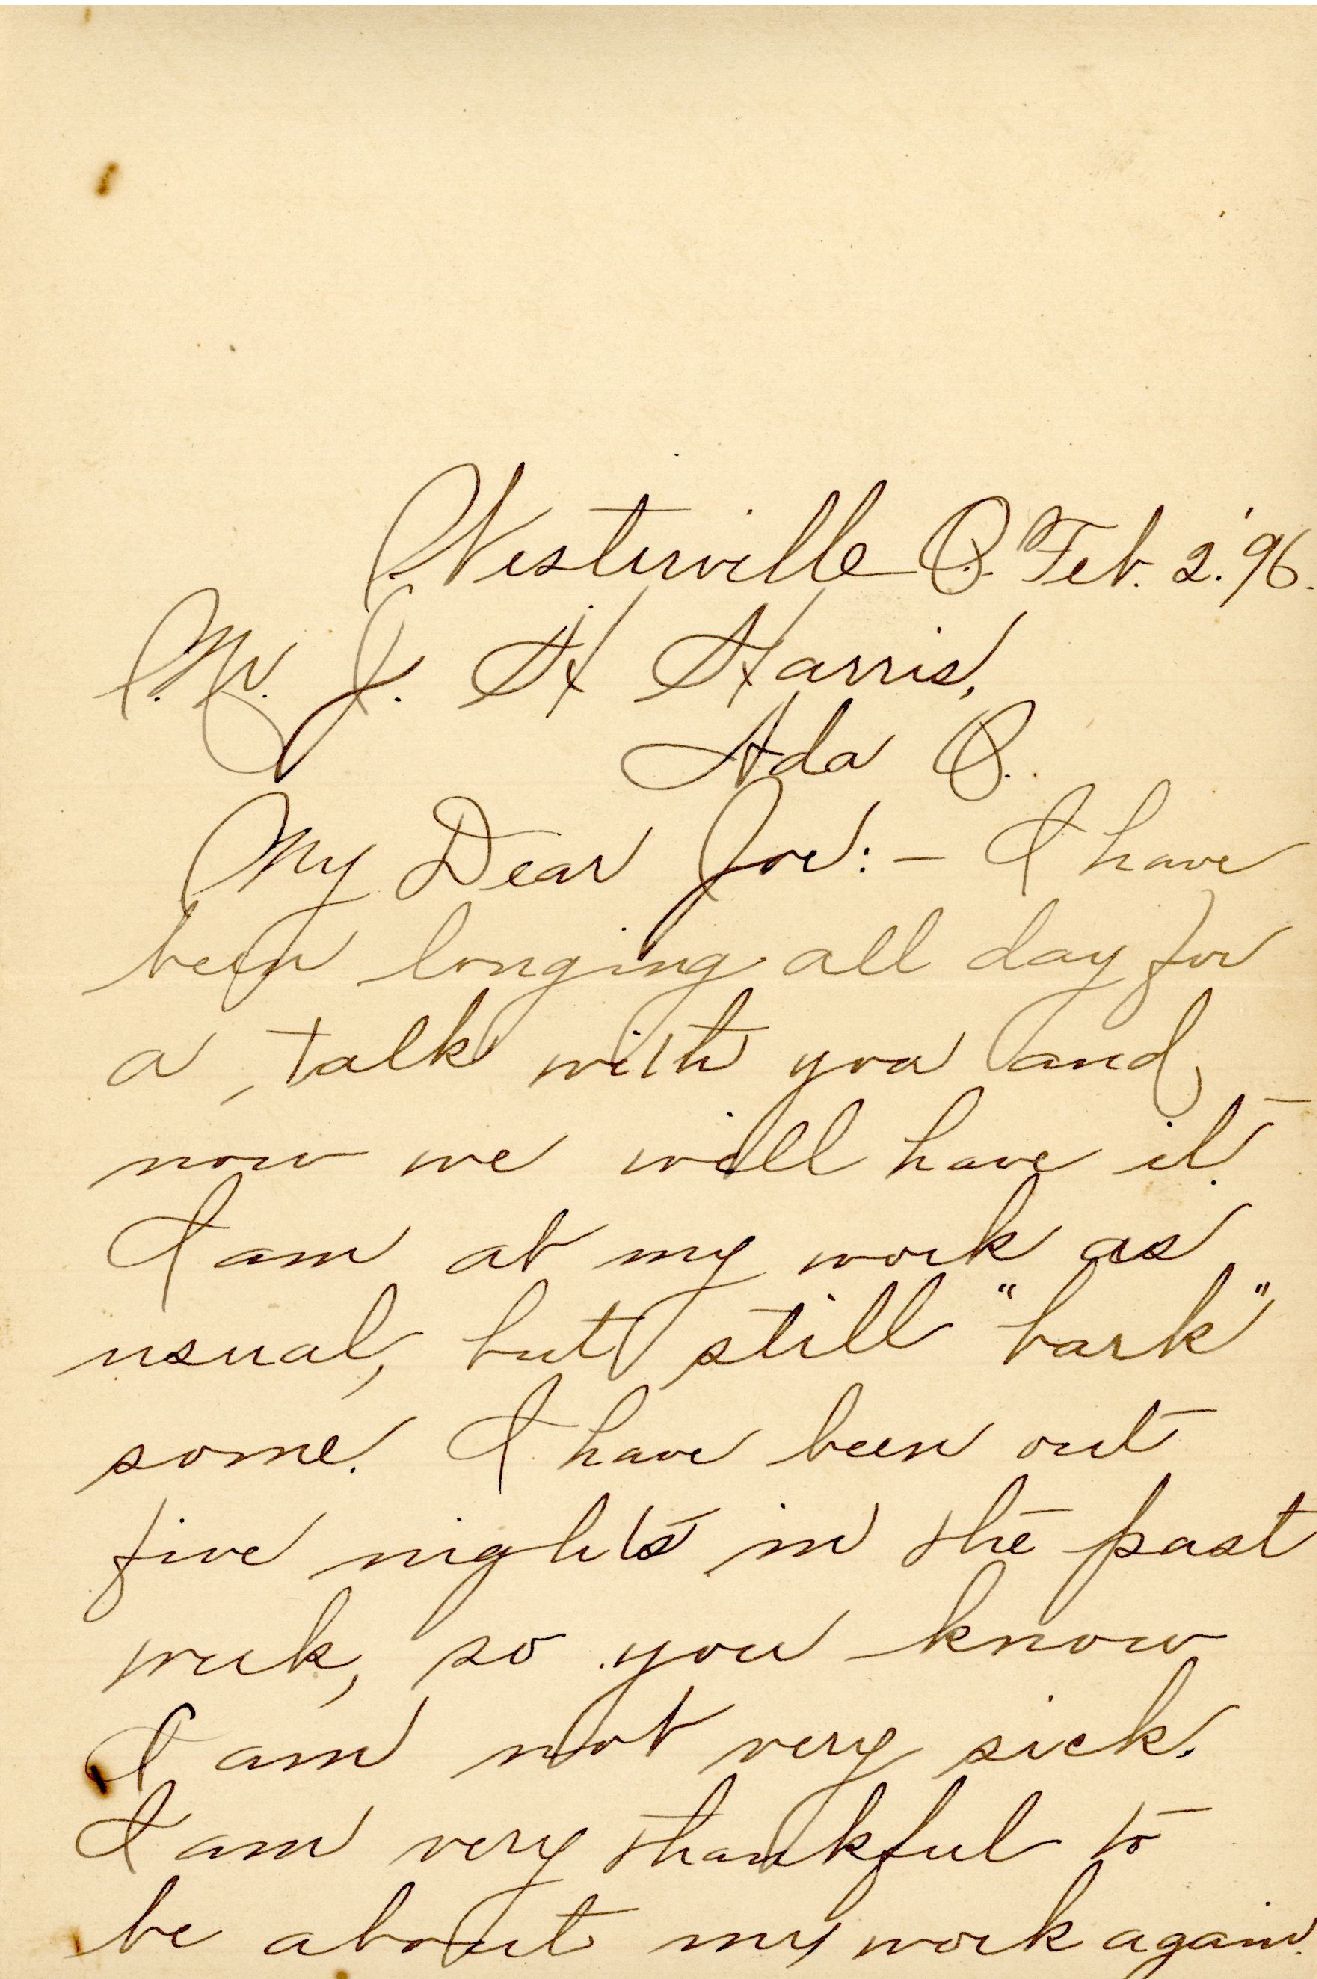 Westerville O. Feb. 2. '96.
Mr. J. H Harris,
Ada O.
My Dear Joe: – I have
been longing all day for
a talk with you and
now we will have it.
I am at my work as
usual, but still "bark"
some. I have been out
five nights in the past
week, so you know
I am not very sick.
I am very thankful to
be about my work again.